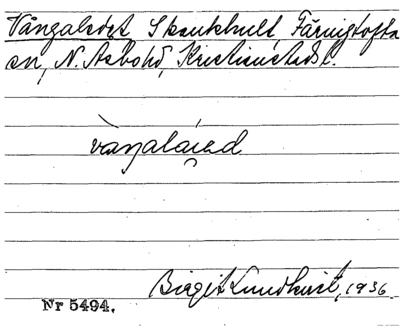 Vångaledet Skankhult, Färingtofta
sn, N. Åsbo hd, Kristianstads l.
Birgit Lundqvist, 1936.
Nr 5494.